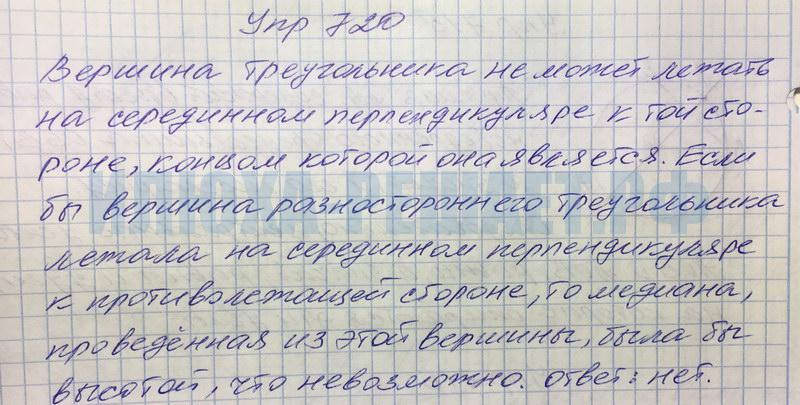 Упр 720
Вершина треугольника не может лежать
на серединном перпендикуляре к той сто-
роне, концом которой она является. Если
бы вершина разностороннего треугольника
лежала на серединном перпендикуляре
к противолежащей стороне, то медиана,
проведённая из этой вершины, была бы
высотой, что невозможно. Ответ: нет.